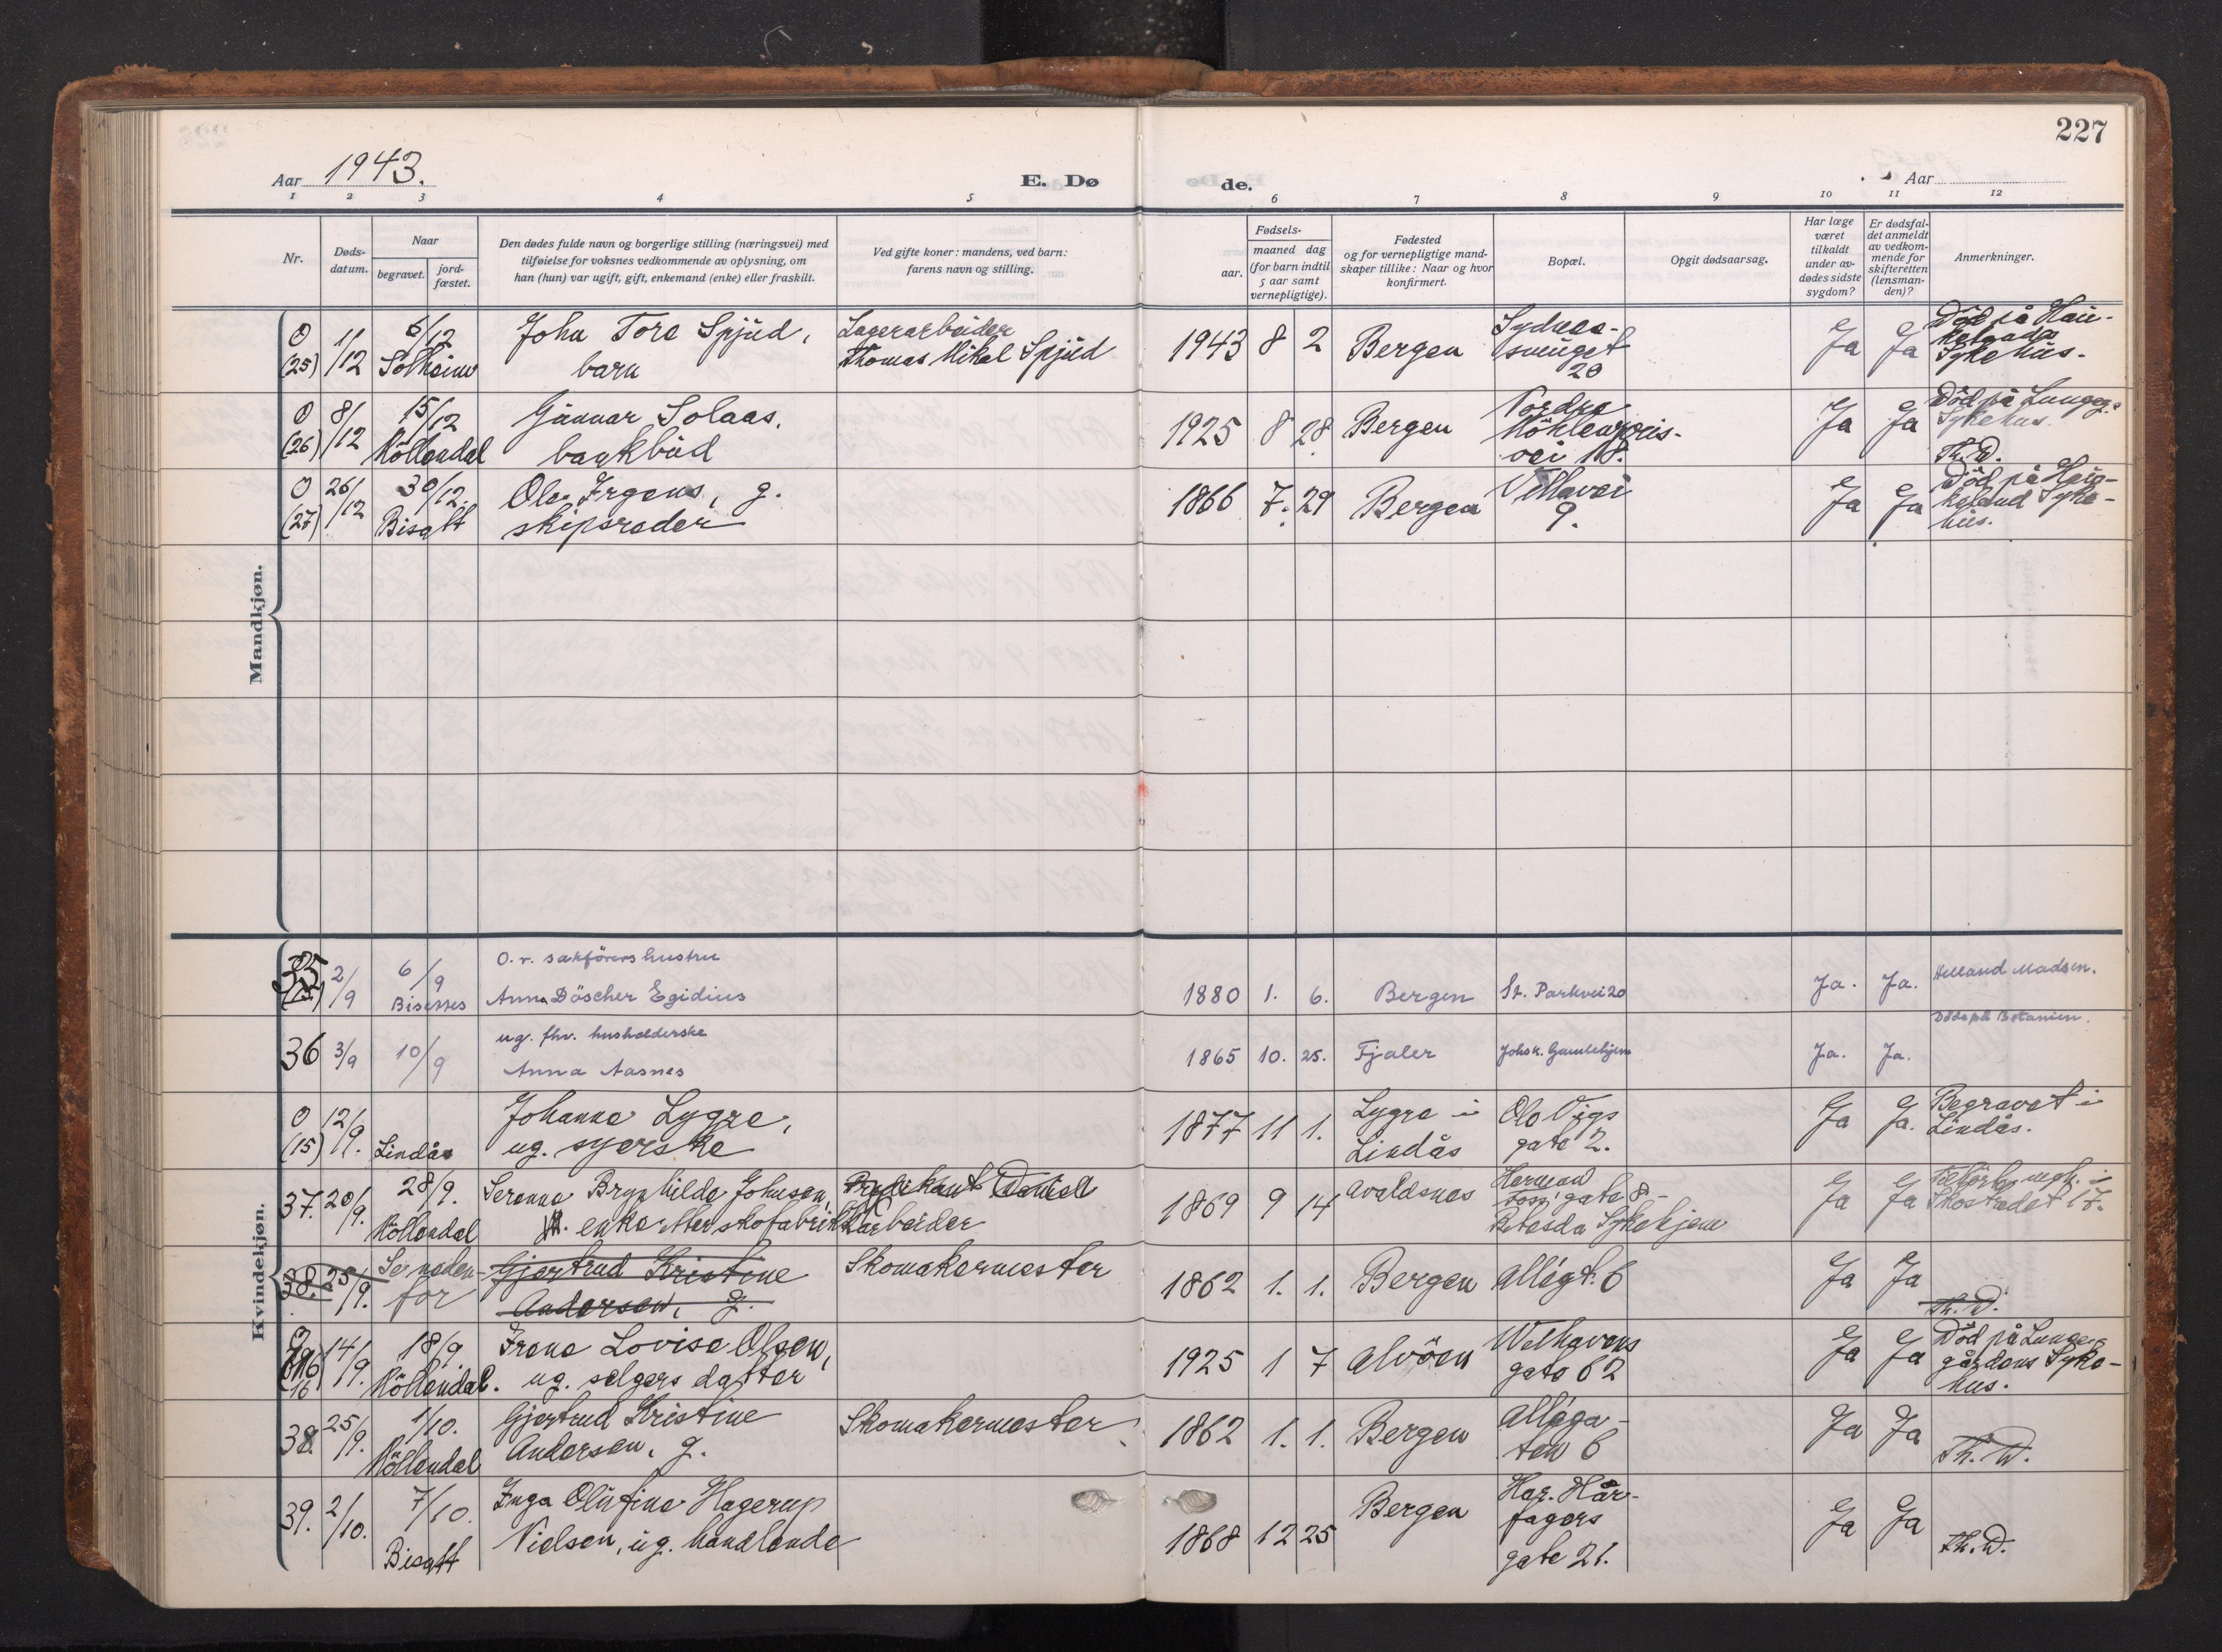 227
Aar 1943.
E. Dø
de.
Aar
1 2 3 4 5 6 7 8 9 10 11 12
Nr.
Døds-
datum.
Naar
begravet.
jord-
fæstet.
Den dødes fulde navn og borgerlige stilling (næringsvei) med
tilføielse for voksnes vedkommende av oplysning, om
han (hun) var ugift, gift, enkemand (enke) eller fraskilt.
Ved gifte koner: mandens, ved barn:
farens navn og stilling.
Fødsels-
aar.
maaned dag
(for barn indtil
5 aar samt
vernepligtige).
Fødested
og for vernepligtige mand-
skaper tillike: Naar og hvor
konfirmert.
Bopæl.
Opgit dødsaarsag.
Har læge
været
tilkaldt
under av-
dødes sidste
sygdom?
Er dødsfal-
det anmeldt
av vedkom-
mende for
skifteretten
(lensman-
den)?
Anmerkninger.
Mandkjøn.
0
(25)
1/12
6/12
Solheim
John Tore Spjud,
barn
Lagerarbeider
Thomas Mikal Spjud
1943 8 2
Bergen
Sydnes-
smuget
20
Ja
Ja
Død på Hau-
kelands
Sykehus.
0
(26)
8/12
15/12
Möllendal
Gunnar Solaas,
bankbud
1925 8 28
Bergen
Nordre
Möhlenpris-
vei 18.
Ja
Ja
Død på Lungeg.
Sykehus.
Th. D.
0
(27)
26/12
30/12.
Bisatt
Ole Irgens, g.
skipsreder
1866 7. 29
Bergen
Villavei
9.
Ja
Ja
Død på Hau-
keland Syke-
hus.
Kvindekjøn.
35
2/9
6/9
Bisettes
O.r. sakförers hustru
Anna Döscher Egidius
1880 1. 6.
Bergen
St. Parkvei 20
Ja.
Ja.
Helland Madsen.
36
3/9
10/9
ug. fhv. husholderske
Anna Aasnes
1865 10. 25.
Fjaler
Ja.
Ja.
Døde på Betanien.
0
(15)
12/9.
Lindås
Johanna Lygre,
ug. syerske
1877 11 1.
Lygre i
Lindås
Ole Vigs
gate 2.
Ja
Ja.
Begravet i
Lindås.
37.
20/9.
28/9.
Möllendal
Serenna Brynhilda Johnsen,
enke etter skofabrikk
arbeider
1869 9 14
Avaldsnes
Herman
Foss' gate 8 -
Betesda Sykehjem
Ja
Ja
Skostredet 17.
38.
25/9.
Se neden-
for
Gjertrud Kristine
Andersen, g.
Skomakermester
1862 1. 1.
Bergen
Allégt. 6
Ja
Ja
Th. D.
0
16
14/9.
18/9.
Möllendal.
Irene Lovise Olsen,
ug. selgers datter
1925 1 7
Alvöen
Welhavens
gate 62
Ja
Ja
Død på Lungeg
gårdens Syke-
hus.
38.
25/9.
1/10.
Möllendal
Gjertrud Kristine
Andersen, g.
Skomakermester
1862 1. 1.
Bergen
Alléga-
ten 6
Ja
Ja
Th. D.
39.
2/10.
7/10.
Bisatt
Inga Olufine Hagerup
Nielsen, ug. handlende
1868 12 25
Bergen
Har. Hår-
fagers
gate 21.
Ja
Ja
Th. D.